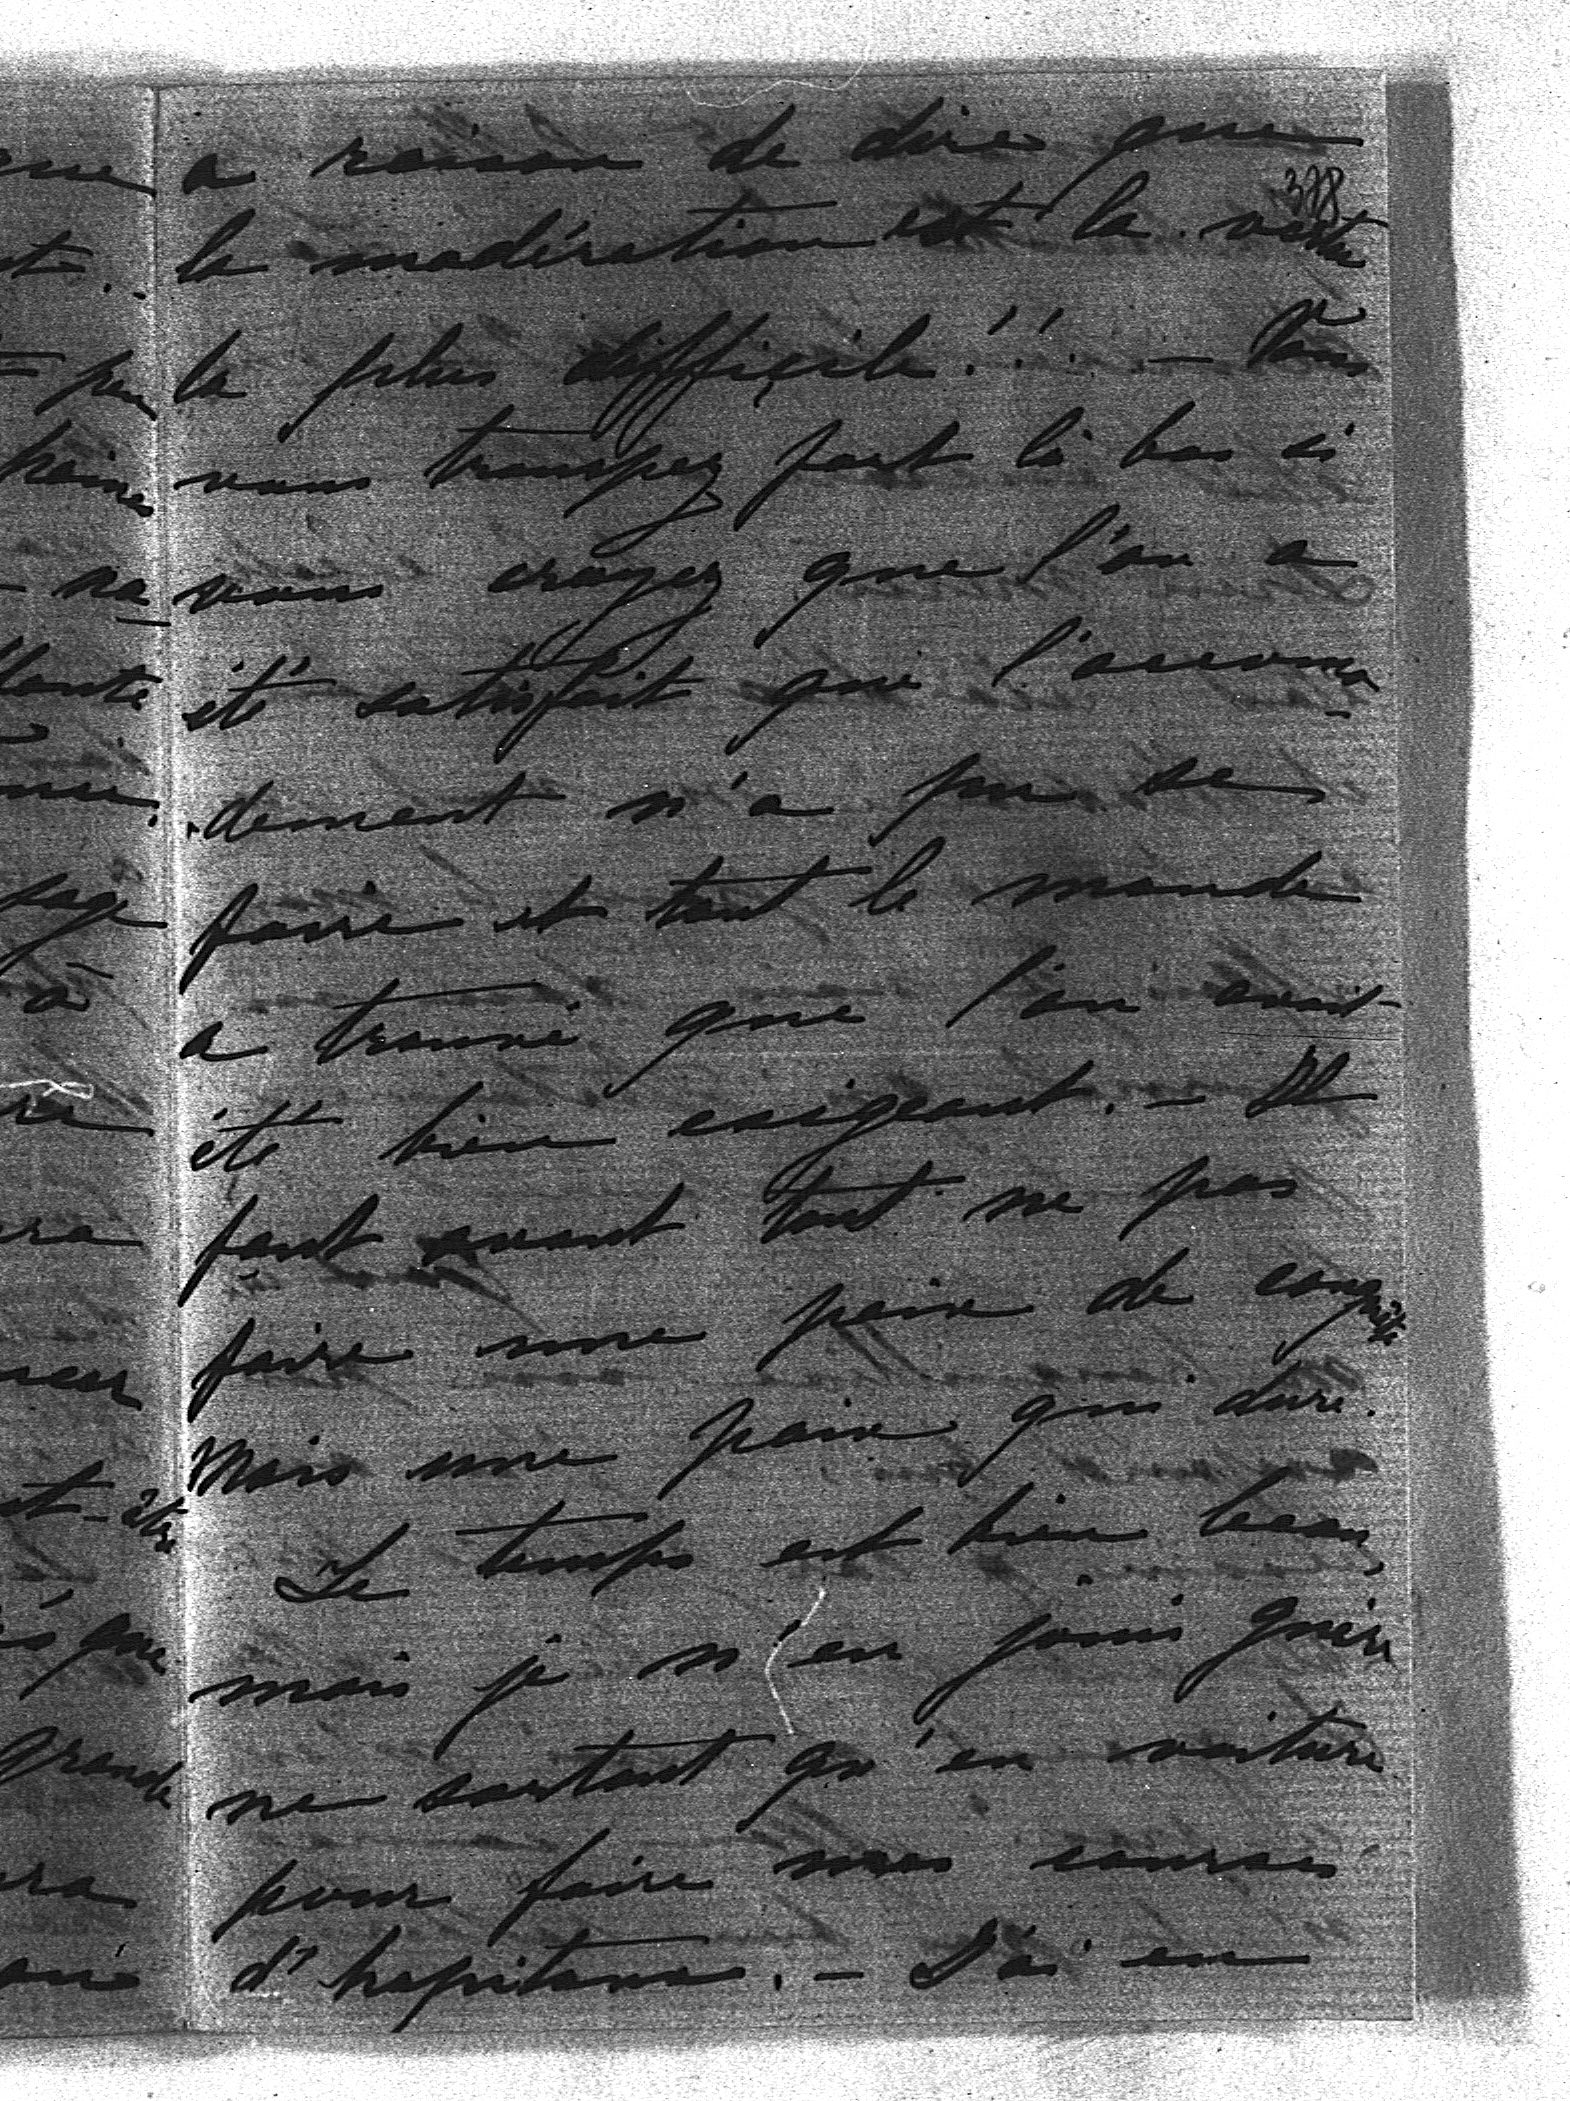 a raison de dire que
378
la modération est la vertu
la plus difficile!! — Vous
vous trompez fort là bas si
vous croyez que l'on a
été satisfait que l'accomo-
dement n'a pu se
faire et tout le monde
a trouvé que l'on avait
été bien exigeant. — Il
faut avant tout ne pas
faire une paix de conquête
Mais une paix qui dure.
Le temps est bien beau,
mais je n'en jouis guère
ne sortant qu'en voiture
pour faire mes courses
d'hopitaux. — J'ai eu